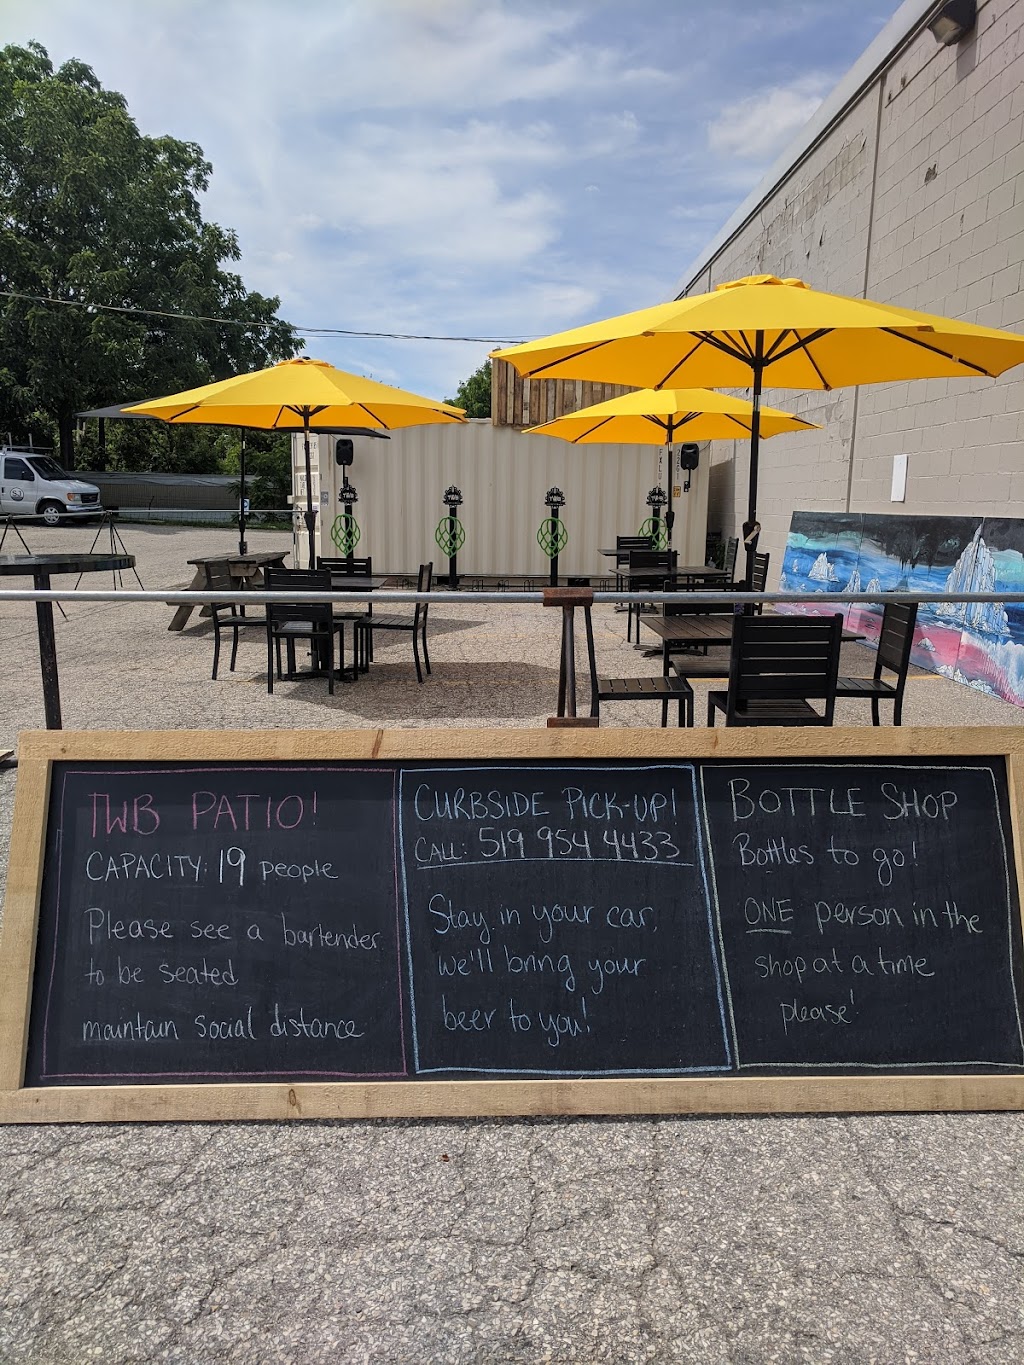 TWB PATIO!
CAPACITY: 19 people
Please see a bartender
to be seated
maintain social distance
CURBSIDE PICK-UP!
CALL: 519 954 4433
Stay in your car,
we'll bring your
beer to you!
BOTTLE SHOP
Bottles to go!
ONE person in the
shop at a time
please!